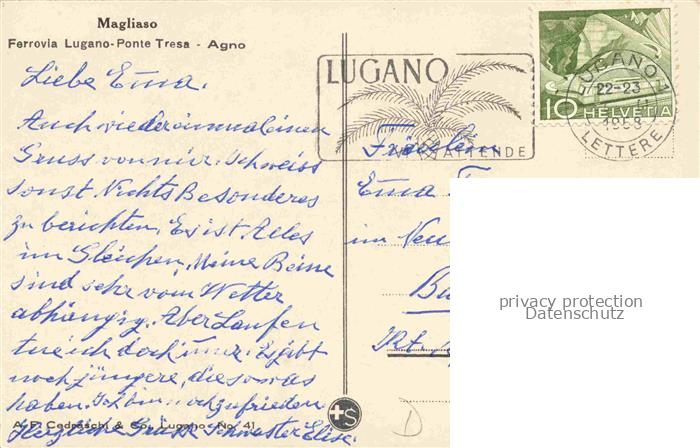 Magliaso
Ferrovia Lugano-Ponte Tresa - Agno
Liebe Emma.
Auch wieder einmal einen
Gruss von mir. Ich weiss
sonst Nichts Besonderes
zu berichten. Es ist Alles
im Gleichen, Meine Beine
sind sehr vom Wetter
abhängig. Aber Laufen
tue ich doch immer. Es gibt
noch jüngere, die so was
haben. Ich bin noch zufrieden
Herzliche Grüsse Schwester Elise.
A. F. Cedraschi & Co, Lugano - No. 41
LUGANO
VI ATTENDE
10 HELVETIA
LUGANO 1
22-23
1953
LETTERE
Fräulein
Emma
im Neu
Bu
Kt.
privacy protection
Datenschutz
+S
D